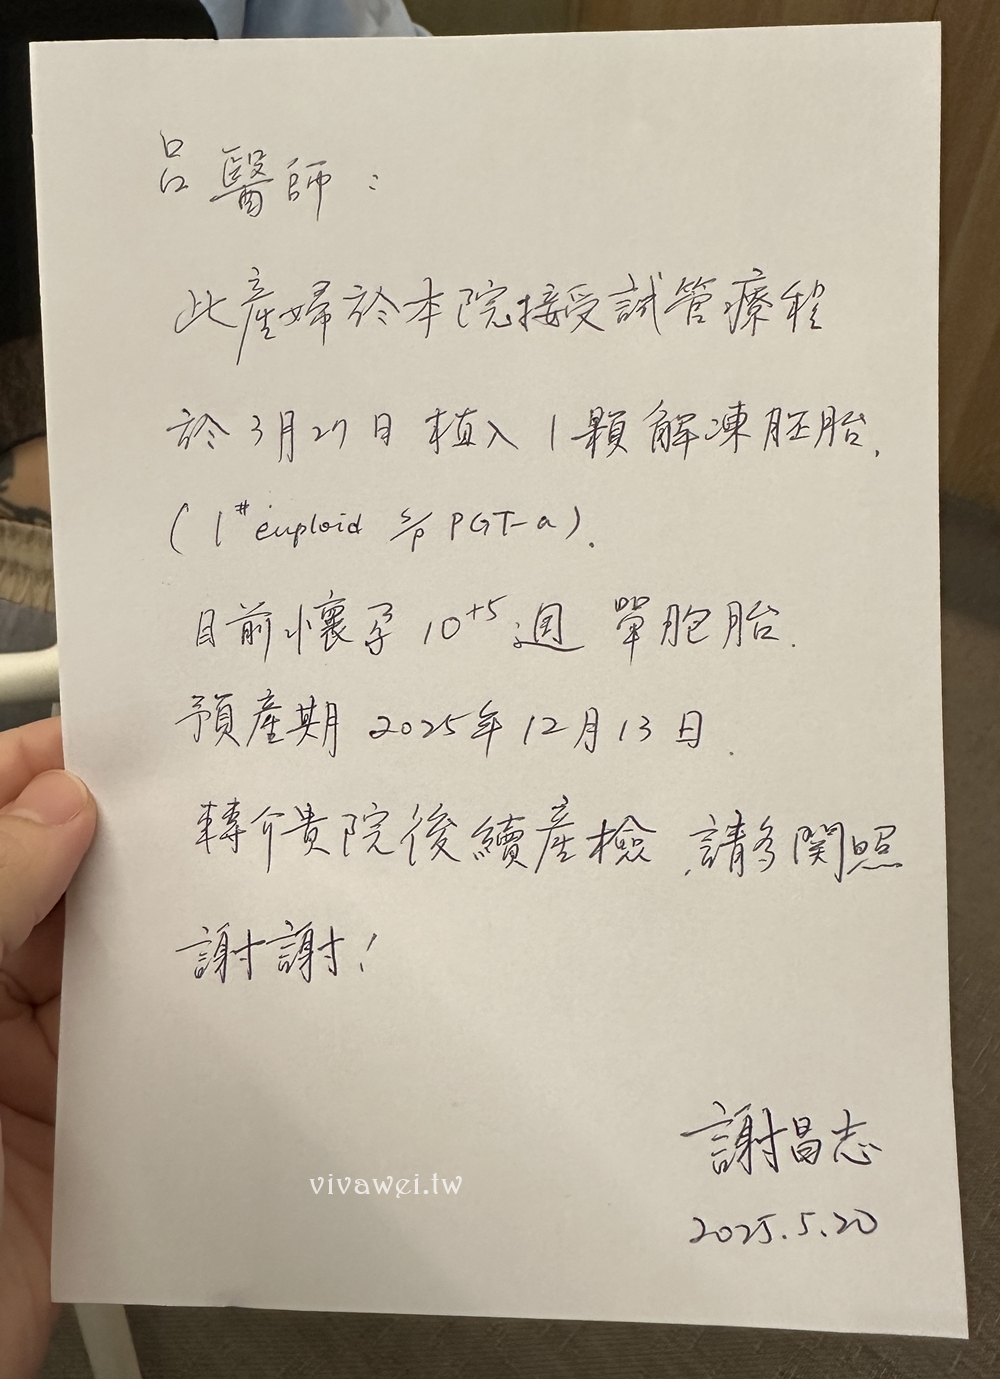 呂醫師：
此產婦於本院接受試管療程
於3月27日植入1顆解凍胚胎.
(1# euploid s/p PGT-a).
目前懷孕10+5週 單胞胎.
預產期 2025年12月13日.
轉介貴院後續產檢,請多關照
謝謝!
謝昌志
vivawei.tw
2025.5.20